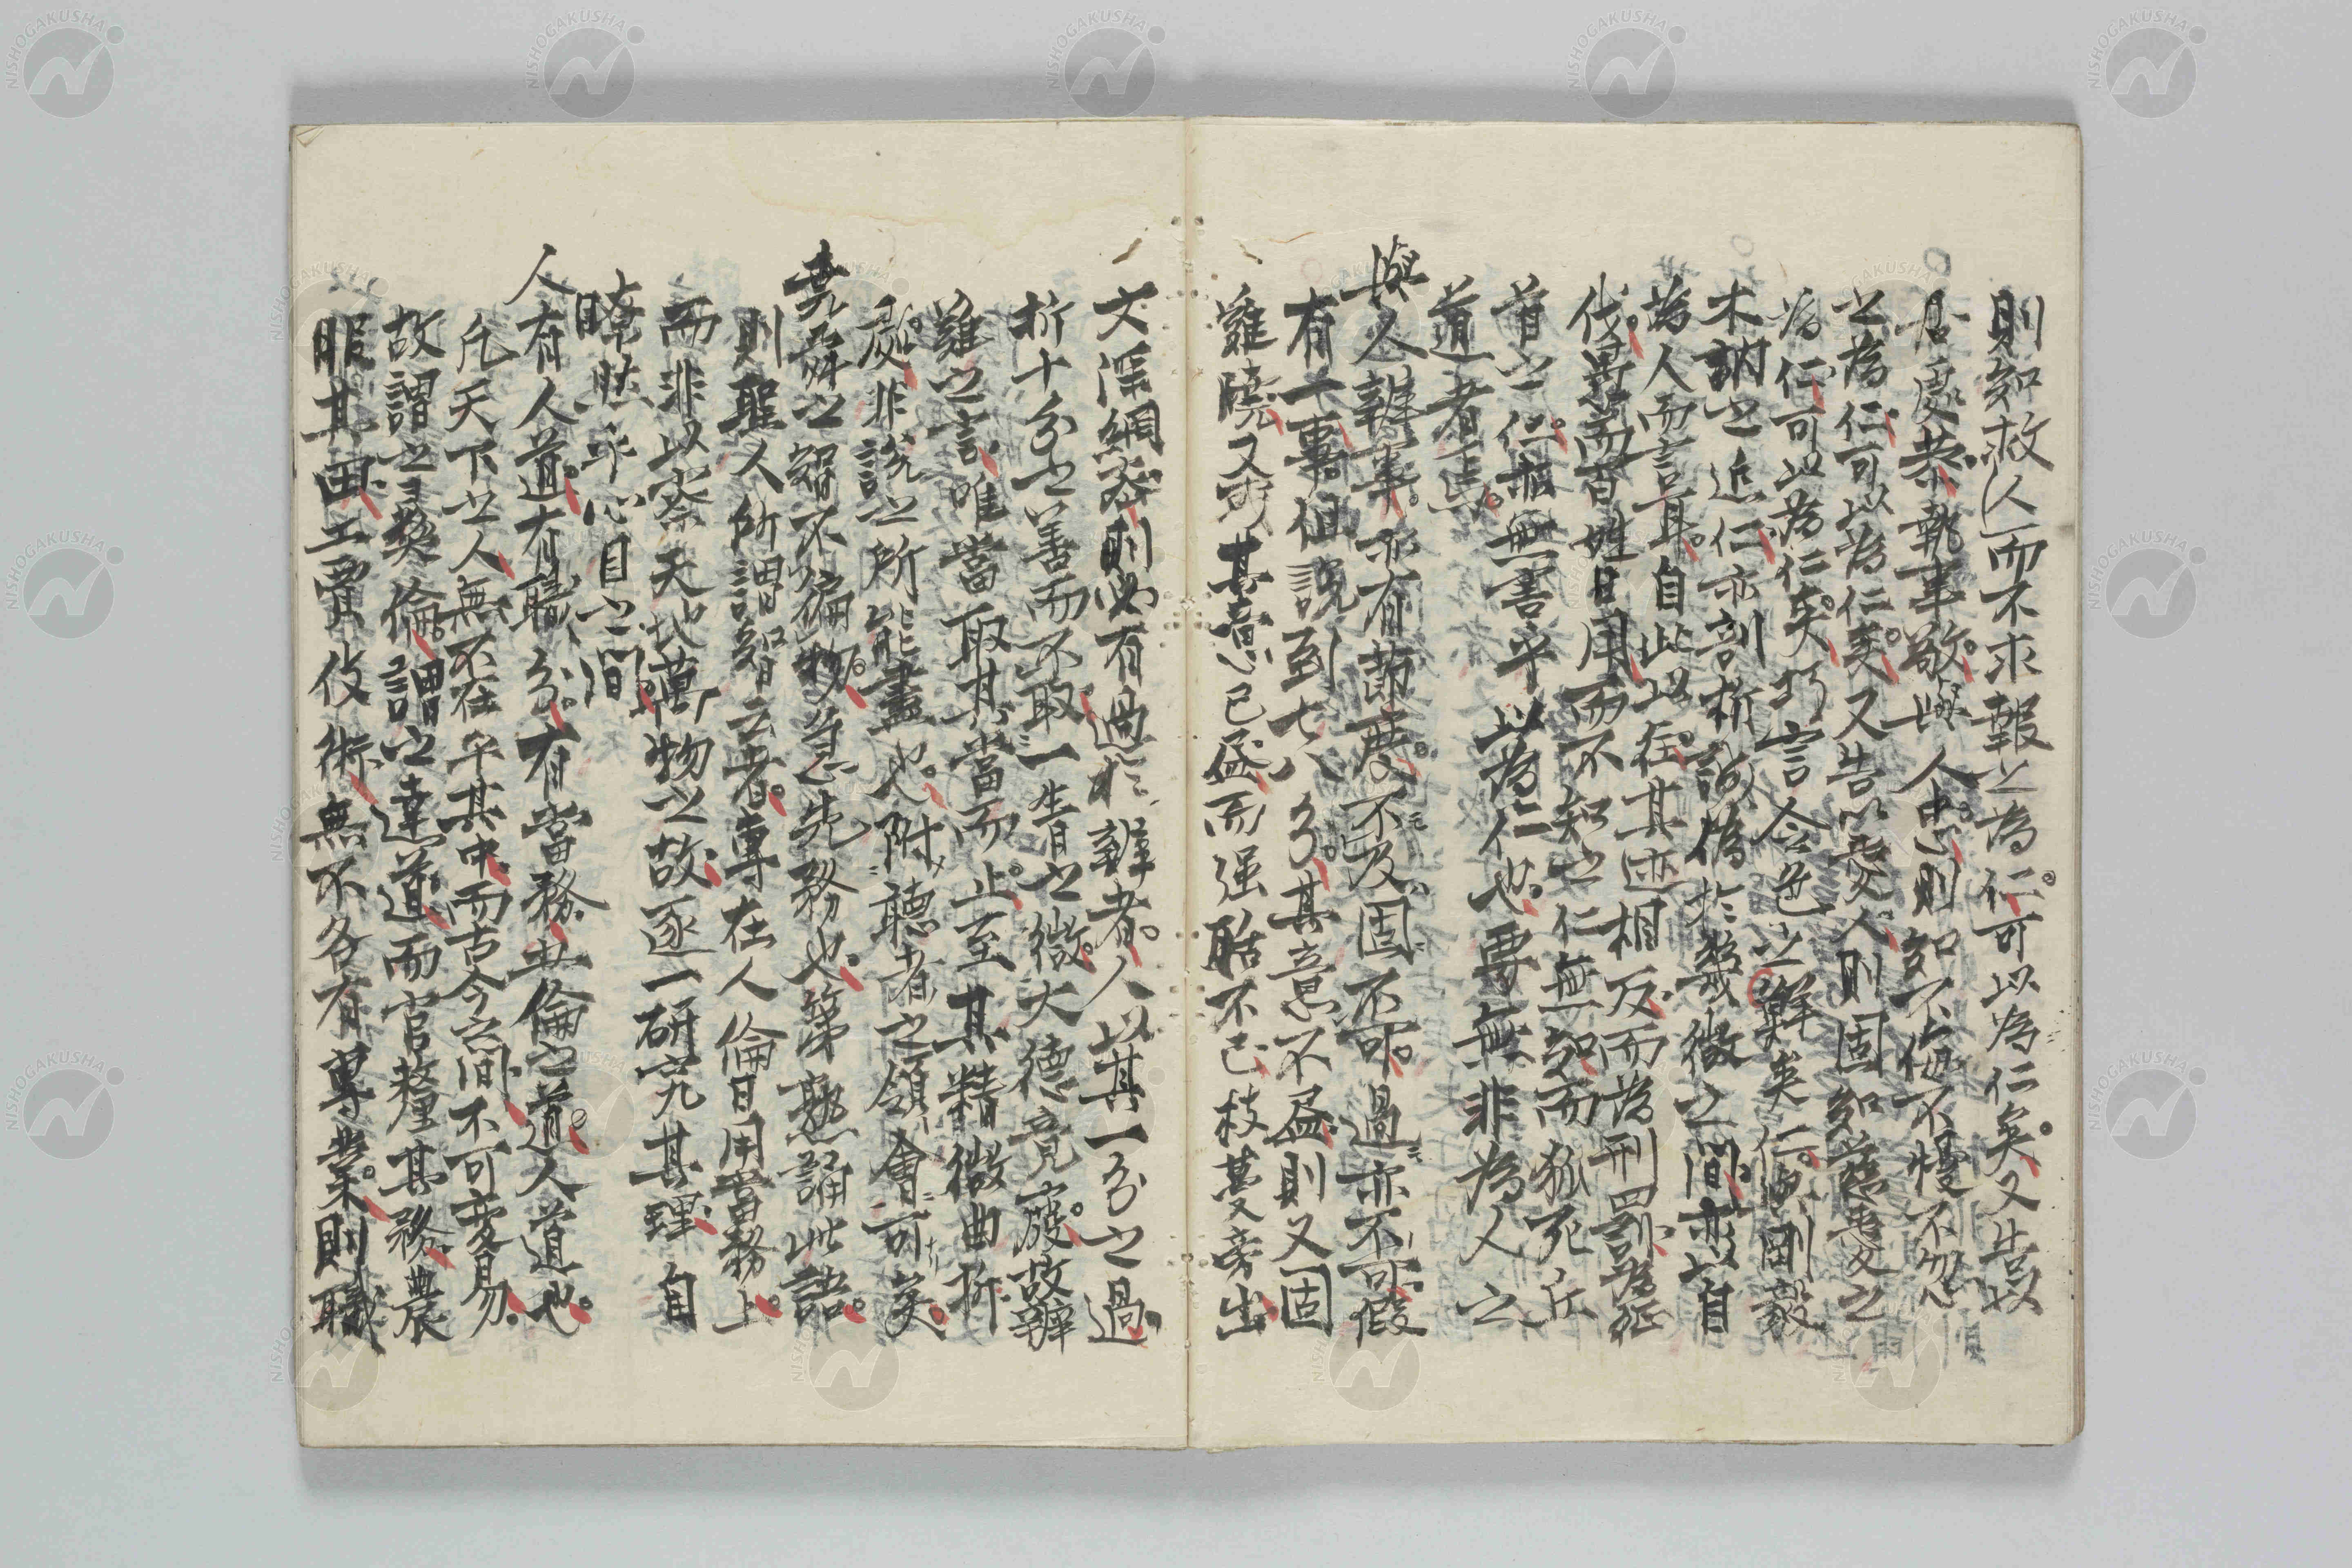 則知救人而不求報之為仁可以為仁矣又告以
居處恭執事敬與人忠則知不侮不慢不忽
之為仁可以為仁矣又告以愛人則固知慈愛之
為仁可以為仁矣巧言令色之鮮矣仁與剛毅
木訥之近仁亦剖析誠偽於幾微之間亦以自
為人而言耳自此以在其迹相反而為刑罰為征
伐異而百姓日用而不知之仁無知而狐死丘
首之仁無害乎以為仁也要無非為人之
道者焉
與人辨事亦有節度不及固不可過亦不可假
有一事但說到七八分其意不盡則又固
難曉又或其意已盡而强聒不已枝蔓旁出
文深網密則必有過於辨者人以其一分之過
折十分之善而不取一眚之微大德竟廢故辨
難之言唯當取其當而止至其精微曲折
處非說之所能盡也附聽者之領會可矣
堯舜之智不徧物急先務也第熟誦此語
則聖人所謂智云者專在人倫日用當務上
而非以察天地萬物之故逐一研究其理自
瞭然乎心目之間
人有人道有職分有當務五倫之道人道也
凡天下之人無不在乎其中而古今之間不可變易
故謂之彝倫謂之達道而官釐其務農
服其田工賈伎術無不各有專業則職
NISHOGAKUSHA